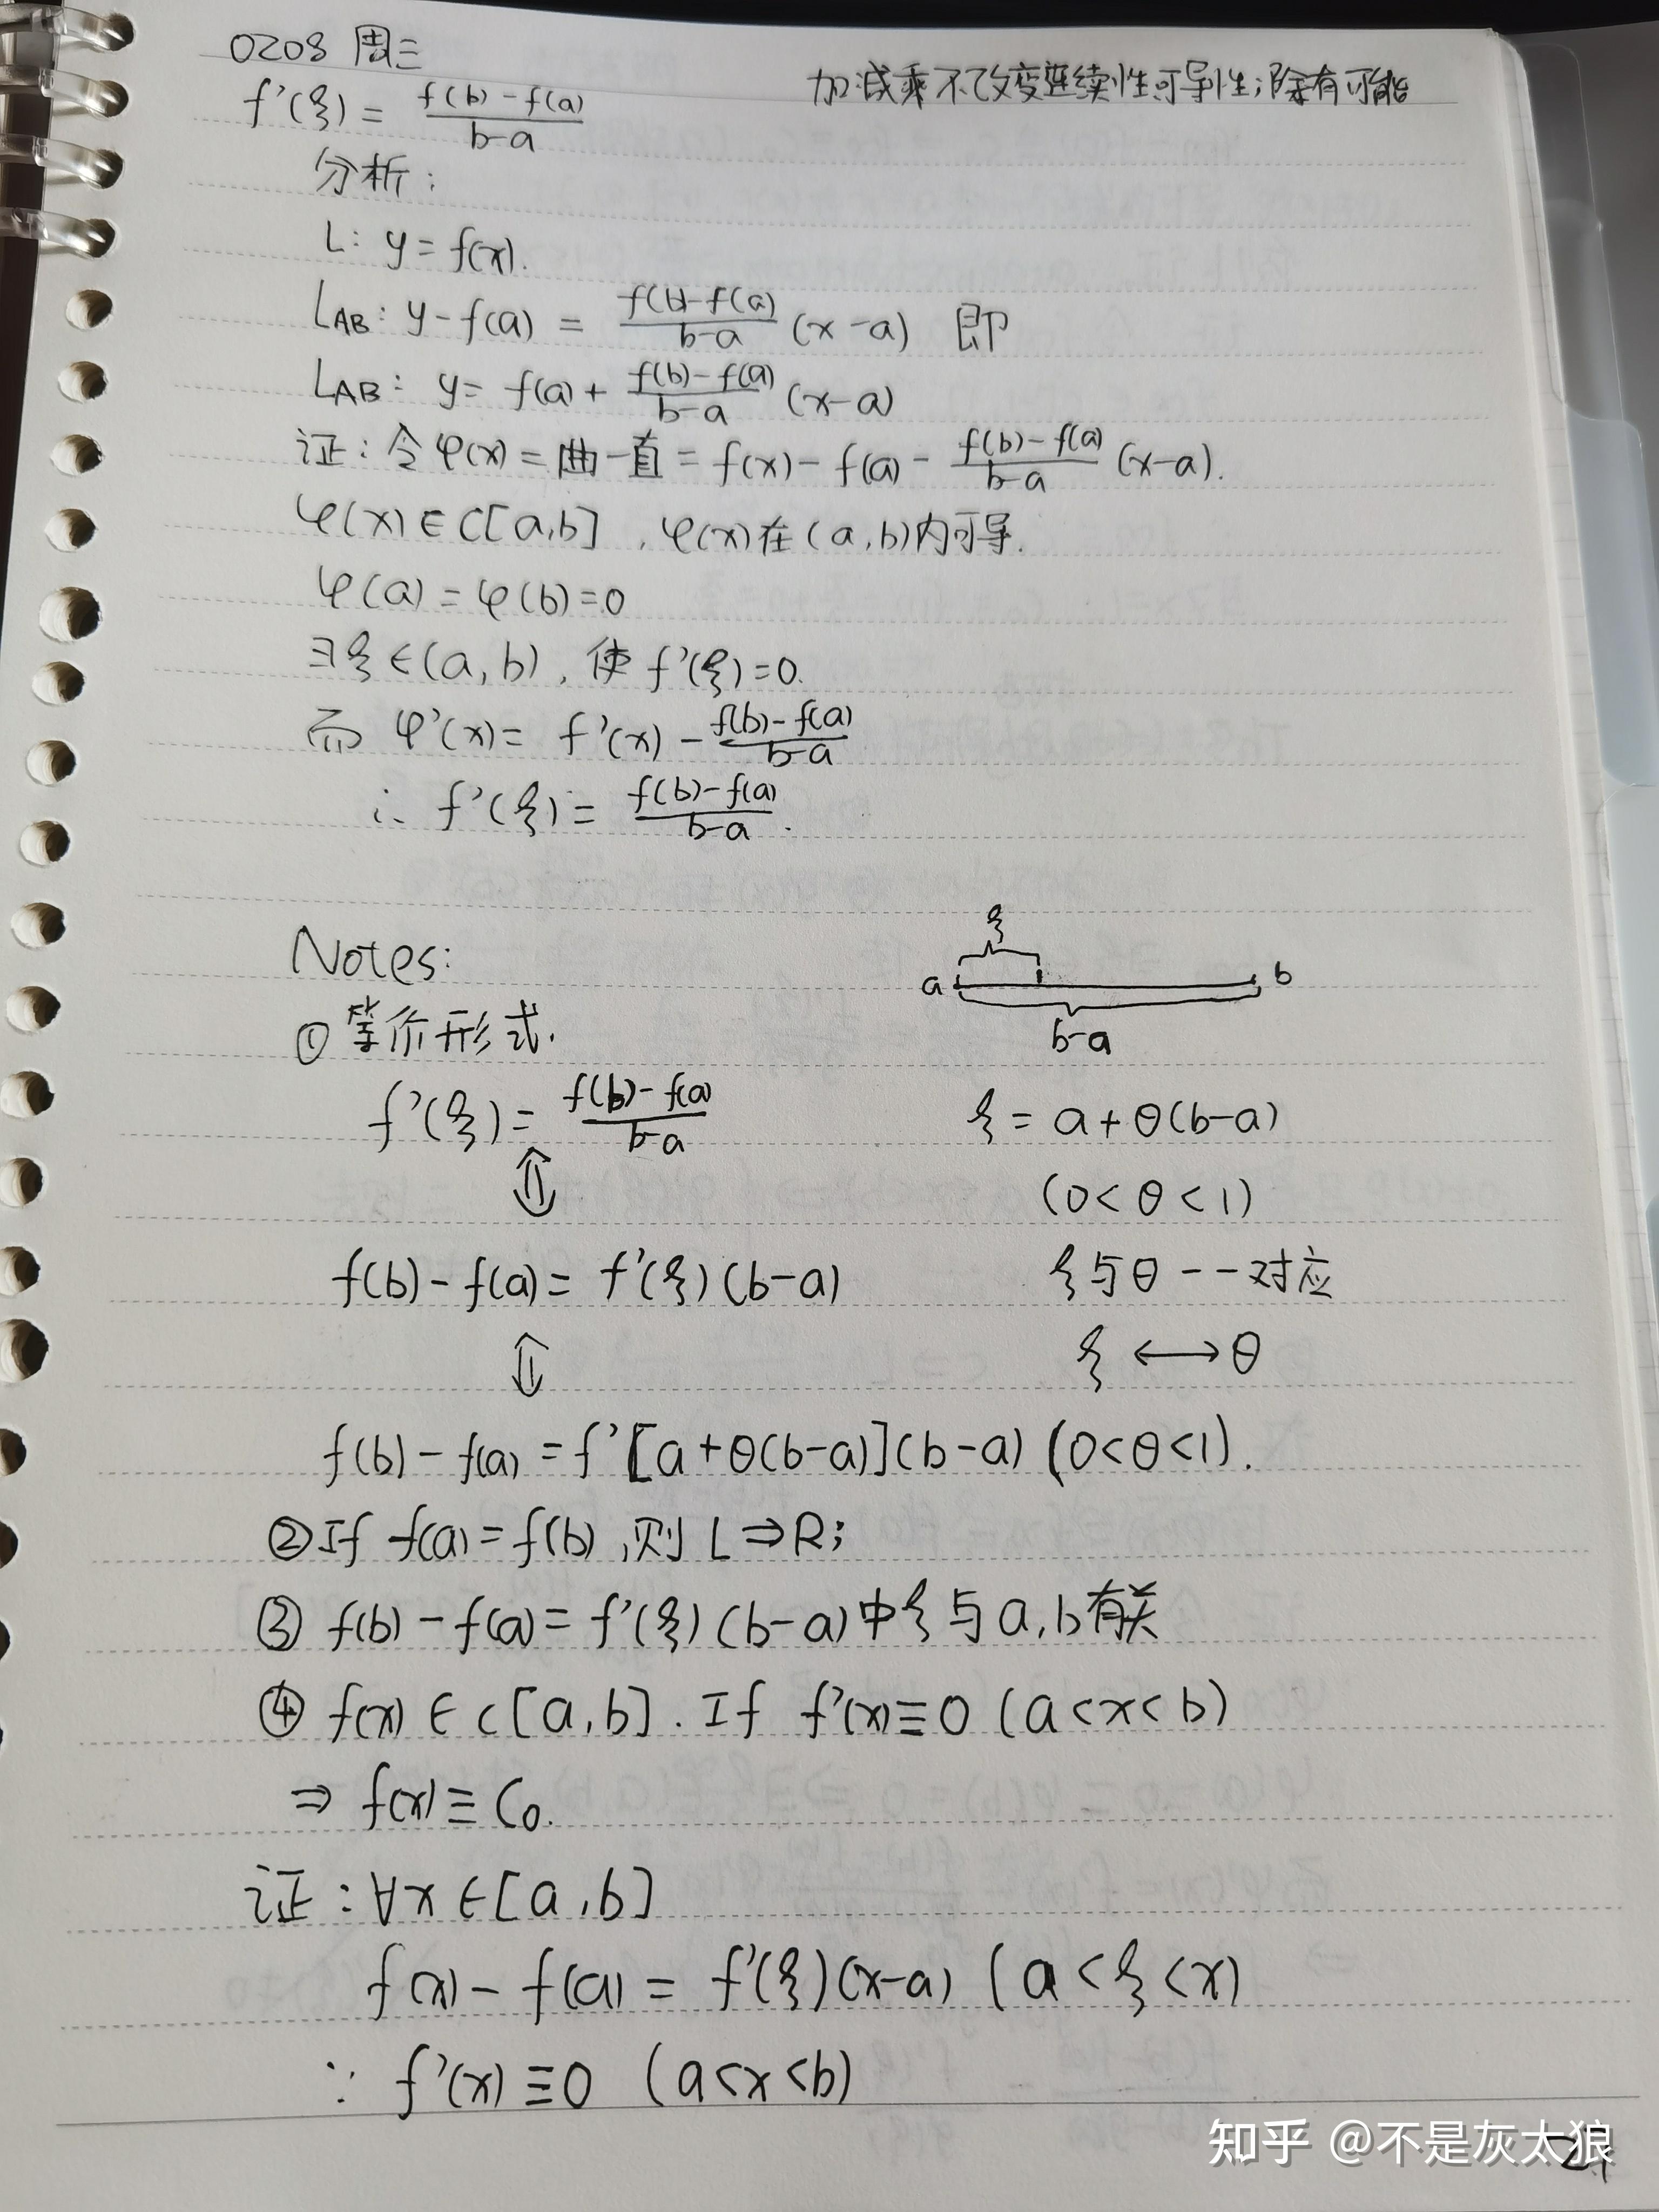 0208 周三
加减乘不改变连续性可导性;除有可能
f'(ξ) = (f(b)-f(a))/(b-a)
分析:
L: y = f(x).
L_AB: y-f(a) = (f(b)-f(a))/(b-a) (x-a) 即
L_AB: y = f(a) + (f(b)-f(a))/(b-a) (x-a)
证:令φ(x) = 曲-直 = f(x) - f(a) - (f(b)-f(a))/(b-a) (x-a).
φ(x) ∈ C[a,b], φ(x)在(a,b)内可导.
φ(a) = φ(b) = 0
∃ξ∈(a,b), 使 f'(ξ)=0.
而 φ'(x) = f'(x) - (f(b)-f(a))/(b-a)
∴ f'(ξ) = (f(b)-f(a))/(b-a).
Notes:
ξ
a b
b-a
① 等价形式.
f'(ξ) = (f(b)-f(a))/(b-a)
ξ = a+θ(b-a)
⇕
(0<θ<1)
f(b)-f(a) = f'(ξ)(b-a)
ξ与θ一一对应
⇕
ξ ⟷ θ
f(b)-f(a) = f'[a+θ(b-a)](b-a) (0<θ<1).
② If f(a)=f(b),则 L⇒R;
③ f(b)-f(a) = f'(ξ)(b-a)中ξ与a,b有关
④ f(x)∈C[a,b]. If f'(x)≡0 (a<x<b)
⇒ f(x)≡C₀.
证:∀x∈[a,b]
f(x)-f(a) = f'(ξ)(x-a) (a<ξ<x)
∵ f'(x)≡0 (a<x<b)
知乎 @不是灰太狼